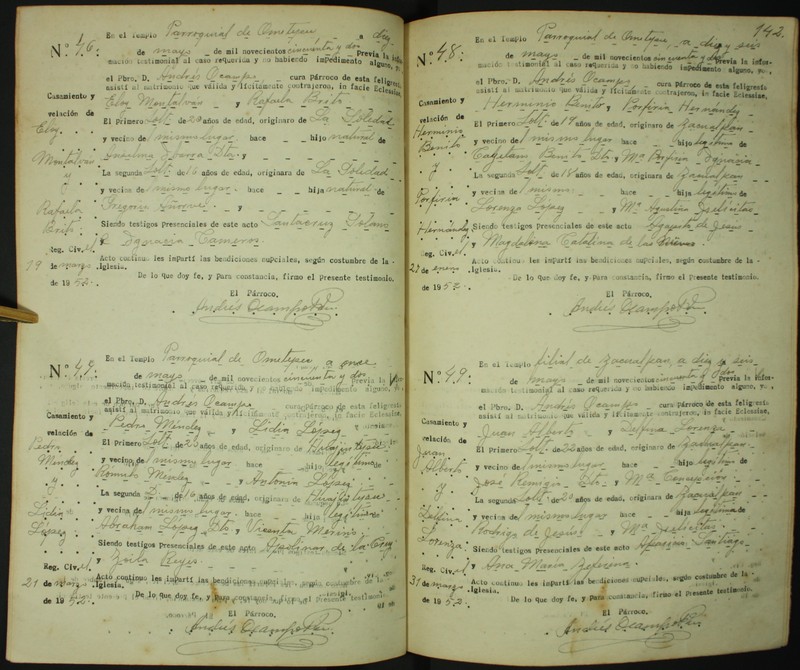 En el Templo Parroquial de Ometepec a diez
Nº 46. de mayo _ de mil novecientos cincuenta y dos Previa la infor-
mación testimonial al caso requerida y no habiendo impedimento alguno, yo,
el Pbro. D. Andrés Ocampo cura Párroco de esta feligresía
asistí al matrimonio que válida y lícitamente contrajeron, in facie Eclessiae,
Casamiento y Eloy Montalván y Rafaela Brito
velación de El Primero Solt. de 20 años de edad, originaro de La Soledad
Eloy y vecino del mismo lugar hace _ hijo natural de
Montalván
y La segunda Solt. de 16 años de edad, originara de La Soledad
y vecina del mismo lugar. hace _ hija natural de
Rafaela
Brito. Siendo testigos Presenciales de este acto Santacruz Solano
y Ignacia Cameros.
Reg. Civ. el
19 de marzo Acto continuo les impartí las bendiciones nupciales, según costumbre de la
Iglesia.
de 1952. De lo que doy fe, y para constancia, firmo el presente testimonio.
El Párroco,
Andrés Ocampo
En el Templo Parroquial de Ometepec a once
Nº 47. de mayo _ de mil novecientos cincuenta y dos Previa la infor-
mación testimonial al caso requerida y no habiendo impedimento alguno, yo,
el Pbro. D. Andrés Ocampo cura Párroco de esta feligresía
asistí al matrimonio que válida y lícitamente contrajeron, in facie Eclessiae,
Casamiento y Pedro Méndez y Lidia López
velación de El Primero Solt. de 23 años de edad, originaro de
Pedro
Méndez y vecino del mismo lugar hace _ hijo legítimo de
Méndez y Antonia López
y La segunda de 16 años de edad, originara de
Lidia y vecina del mismo lugar. hace hija legítima de
López. Abraham López Dto. y Vicenta Merino
Siendo testigos Presenciales de este acto Apolinar de la Cruz
y Zoila Reyes
Reg. Civ. el
21 de Acto continuo les impartí las bendiciones nupciales, según costumbre de la
Iglesia.
de 1952. De lo que doy fe, y para constancia, firmo el presente testimonio.
El Párroco,
Andrés Ocampo
142.
En el Templo Parroquial de Ometepec, a diez y seis
Nº 48. de mayo _ de mil novecientos cincuenta y dos Previa la infor-
mación testimonial al caso requerida y no habiendo impedimento alguno, yo,
el Pbro. D. Andrés Ocampo cura Párroco de esta feligresía
asistí al matrimonio que válida y lícitamente contrajeron, in facie Eclessiae,
Casamiento y Herminio Benito y Porfiria Hernández
velación de El Primero Solt. de 19 años de edad, originaro de Zacualpan
Herminio y vecino del mismo lugar hace _ hijo legítimo de
Benito Cayetano Benito Dto. y Mª Porfiria Ignacia
y La segunda Solt. de 18 años de edad, originara de Zacualpan
Porfiria y vecina del mismo. hace _ hija legítima de
Lorenzo López y Mª Agustina
Hernández Siendo testigos Presenciales de este acto Augusto de Jesus
y Magdalena Catalina de las Nieves.
Reg. Civ. el
23 de enero Acto continuo les impartí las bendiciones nupciales, según costumbre de la
Iglesia.
de 1952. De lo que doy fe, y para constancia, firmo el presente testimonio.
El Párroco,
Andrés Ocampo
En el Templo filial de Zacualpan, a diez y seis
Nº 49. de mayo _ de mil novecientos cincuenta y dos Previa la infor-
mación testimonial al caso requerida y no habiendo impedimento alguno, yo,
el Pbro. D. Andrés Ocampo cura Párroco de esta feligresía
asistí al matrimonio que válida y lícitamente contrajeron, in facie Eclessiae,
Casamiento y Juan Alberto y Delfina Lorenza
velación de El Primero Solt. de 22 años de edad, originaro de Zacualpan
Juan
Alberto y vecino del mismo lugar hace _ hijo legítimo de
José Remigio Dto. y Mª
y La segunda Solt. de 20 años de edad, originara de Zacualpan
Delfina y vecina del mismo lugar hace _ hija legítima de
Lorenza. Rodrigo de Jesús y Mª
Siendo testigos Presenciales de este acto Santiago
y Ana María Zeferina.
Reg. Civ. el
31 de marzo Acto continuo les impartí las bendiciones nupciales, según costumbre de la
Iglesia.
de 1952. De lo que doy fe, y para constancia, firmo el presente testimonio.
El Párroco,
Andrés Ocampo